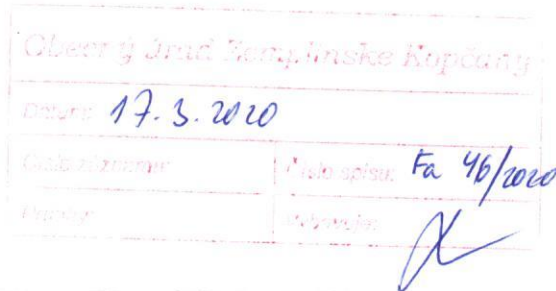 Obecný úrad Zemplínske Kopčany
Dátum: 17. 3. 2020
Číslo záznamu: Číslo spisu: Fa 46/2020
Prílohy: Vybavuje: